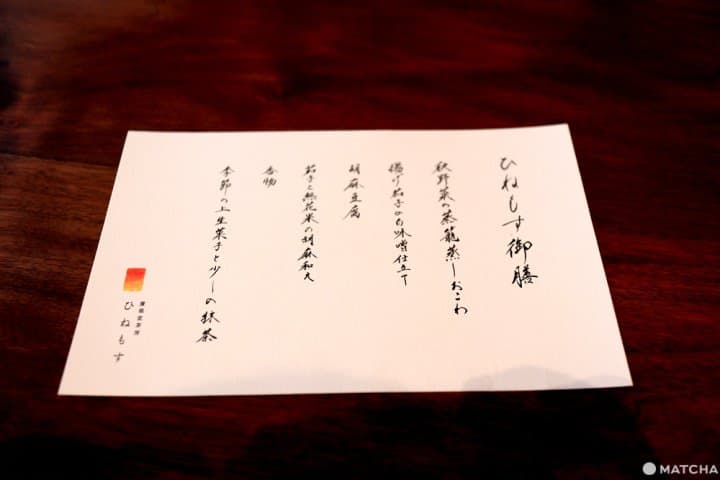 ひねもす御膳
秋野菜の蒸籠蒸しおこわ
揚げ茄子の白味噌仕立て
胡麻豆腐
茄子と無花果の胡麻和え
香物
季節の上生菓子と少しの抹茶
ひねもす
MATCHA